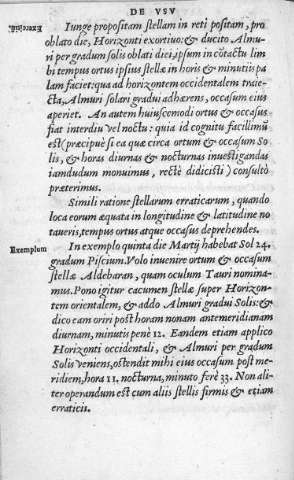 DE VSV
Exercitiũ. Iunge propositam stellam in reti positam, pro
oblato die, Horizonti exortiuo: & ducito Almu-
ri per gradum solis oblati diei, ipsum in cõtactu lim
bi tempus ortus ipsius stellæ in horis & minutiis pa
lam faciet: qua ad horizontem occidentalem traie-
cta, Almuri solari gradui adhærens, occasum eius
aperiet. An autem huiuscemodi ortus & occasus
fiat interdiu vel noctu: quia id cognitu facillimũ
est (præcipuè si ea quæ circa ortum & occasum So
lis, & horas diurnas & nocturnas inuestigandas
iamdudum monuimus, rectè didicisti) consultò
præterimus.
Simili ratione stellarum erraticarum, quando
loca eorum æquata in longitudine & latitudine no
taueris, tempus ortus atque occasus deprehendes.
Exemplum In exemplo quinta die Martij habebat Sol 24.
gradum Piscium. Volo inuenire ortum & occasum
stellæ Aldebaran, quam oculum Tauri nomina-
mus. Pono igitur cacumen stellæ super Horizon-
tem orientalem, & addo Almuri gradui Solis: &
dico eam oriri post horam nonam antemeridianam
diurnam, minutis penè 12. Eandem etiam applico
Horizonti occidentali, & Almuri per gradum
Solis veniens, ostendit mihi eius occasum post me-
ridiem, hora 11. nocturna, minuto ferè 33. Non ali-
ter operandum est cum aliis stellis firmis & etiam
erraticis.